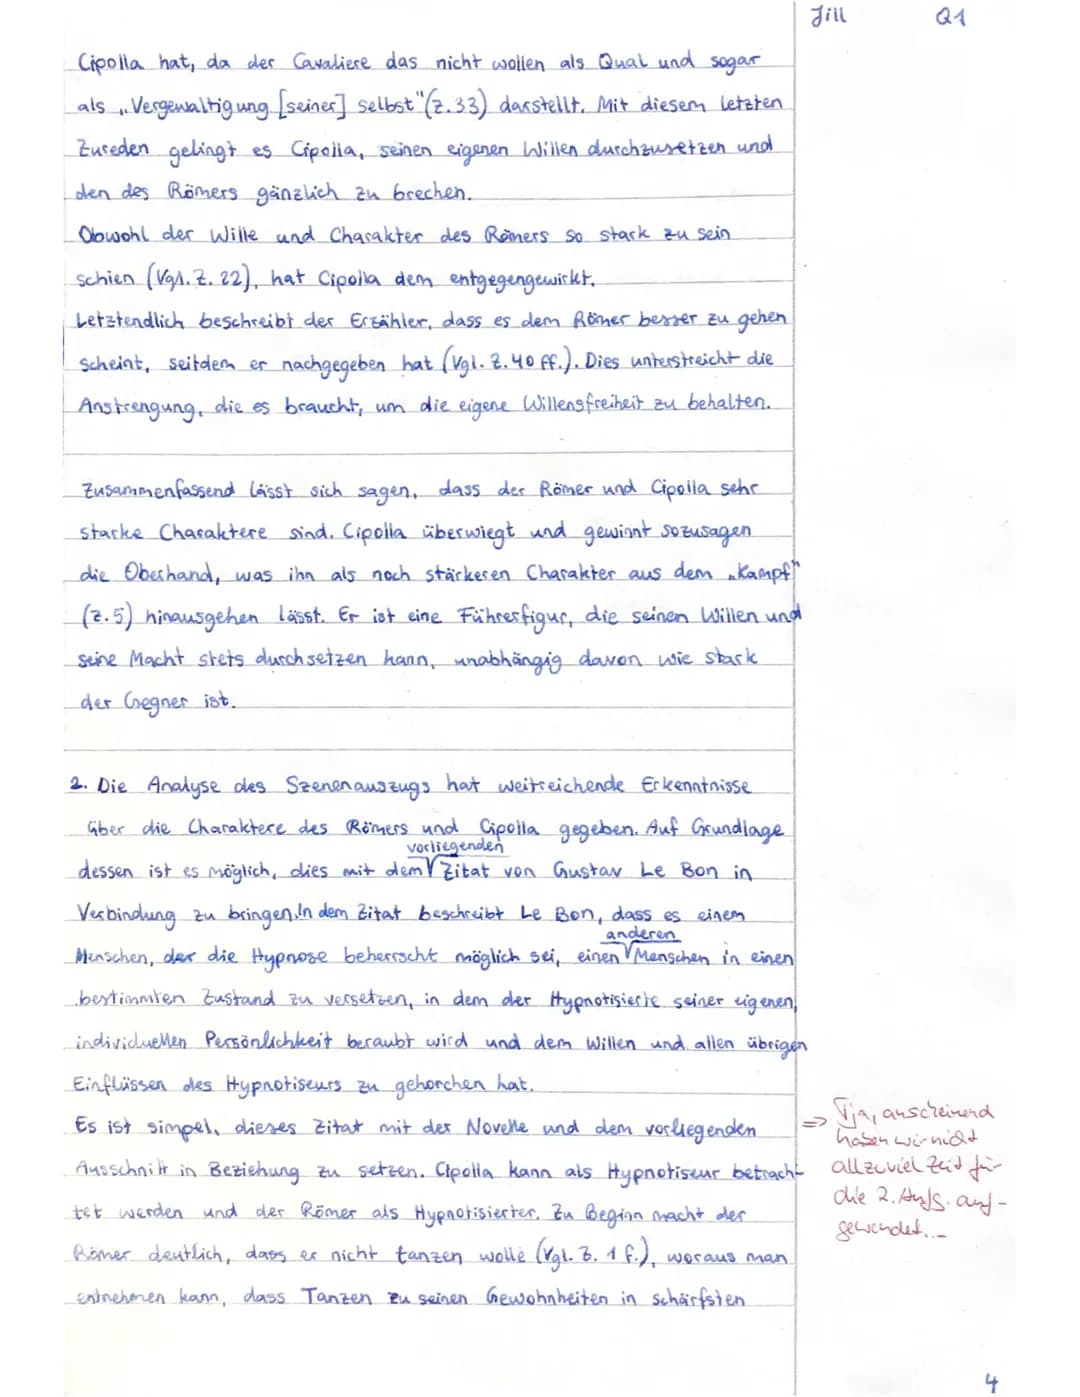 Jill Q1
Cipolla hat, da der Cavaliere das nicht wollen als Qual und sogar
als „Vergewaltigung [seiner] selbst" (Z.33) darstellt. Mit diesem letzten
Zureden gelingt es Cipolla, seinen eigenen Willen durchzusetzen und
den des Römers gänzlich zu brechen.
Obwohl der Wille und Charakter des Römers so stark zu sein
schien (Vgl. Z. 22), hat Cipolla dem entgegengewirkt.
Letztendlich beschreibt der Erzähler, dass es dem Römer besser zu gehen
scheint, seitdem er nachgegeben hat (Vgl. Z. 40 ff.). Dies unterstreicht die
Anstrengung, die es braucht, um die eigene Willensfreiheit zu behalten.
Zusammenfassend lässt sich sagen, dass der Römer und Cipolla sehr
starke Charaktere sind. Cipolla überwiegt und gewinnt sozusagen
die Oberhand, was ihn als noch stärkeren Charakter aus dem „Kampf"
(Z.5) hinausgehen lässt. Er ist eine Führerfigur, die seinen Willen und
seine Macht stets durchsetzen kann, unabhängig davon wie stark
der Gegner ist.
2. Die Analyse des Szenenauszugs hat weitreichende Erkenntnisse
über die Charaktere des Römers und Cipolla gegeben. Auf Grundlage
vorliegenden
dessen ist es möglich, dies mit dem Zitat von Gustav Le Bon in
Verbindung zu bringen. In dem Zitat beschreibt Le Bon, dass es einem
anderen
Menschen, der die Hypnose beherrscht möglich sei, einen Menschen in einen
bestimmten Zustand zu versetzen, in dem der Hypnotisierte seiner eigenen,
individuellen Persönlichkeit beraubt wird und dem Willen und allen übrigen
Einflüssen des Hypnotiseurs zu gehorchen hat.
Es ist simpel, dieses Zitat mit der Novelle und dem vorliegenden
Ausschnitt in Beziehung zu setzen. Cipolla kann als Hypnotiseur betrach-
tet werden und der Römer als Hypnotisierter. Zu Beginn macht der
Römer deutlich, dass er nicht tanzen wolle (Vgl. Z. 1 f.), woraus man
entnehmen kann, dass Tanzen zu seinen Gewohnheiten in schärfsten
=> Tja, anscheinend
haben wir nicht
allzuviel Zeit für
die 2. Aufg. auf-
gewendet...
4